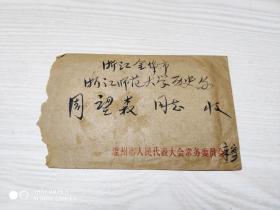 浙江金华市
浙江师范大学历史系
周望森 同志 收
温州市人民代表大会常务委员会